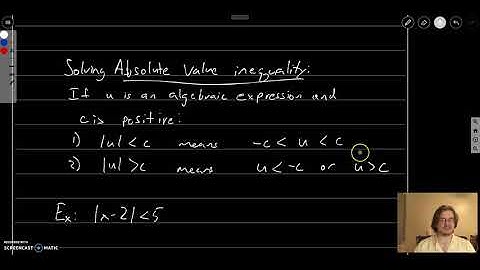 Solving Absolute Value inequality:
If u is an algebraic expression and
c is positive:
1) |u| < c means -c < u < c
2) |u| > c means u < -c or u > c
Ex: |x-2| < 5
RECORDED WITH
SCREENCAST MATIC